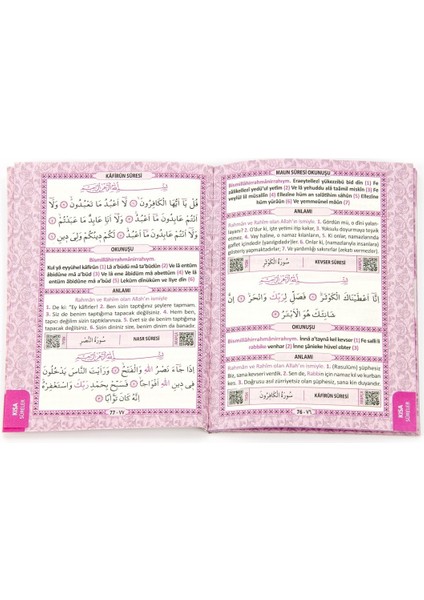 MAUN SÛRESİ OKUNUŞU
Bismillâhirrahmânirrahıym. Eraeytellezî yükezzibü bid dîn (1) Fe
zâlikellezî yedu'ul yetîm (2) Ve lâ yehuddu alâ taâmil miskîn (3) Fe
veylül lil müsallîn (4) Ellezîne hüm an salâtihim sâhûn (5) Ellezîne
hüm yürâûn (6) Ve yemneûnel mâûn (7)
ANLAMI
Rahmân ve Rahîm olan Allah'ın ismiyle. 1. Gördün mü, o dîni yalan-
4. Vay haline, o namaz kılanların, 5. Ki onlar, namazlarında
KEVSER SÛRESİ
سُورَةُ الْكَوْثَرِ
اِنَّٓا اَعْطَيْنَاكَ الْكَوْثَرَۜ فَصَلِّ لِرَبِّكَ وَانْحَرْۜ اِنَّ
شَانِئَكَ هُوَ الْاَبْتَرُ
OKUNUŞU
Bismillâhirrahmânirrahıym. İnnâ a'taynâ kel kevser (1) Fe salli li
rabbike venhar (2) İnne şânieke hüvel ebter (3)
ANLAMI
Rahmân ve Rahîm olan Allah'ın ismiyle. 1. (Rasulüm) şüphesiz
Biz, sana kevseri verdik. 2. Sen de, Rabbin için namaz kıl ve kurban
kes. 3. Doğrusu asıl zürriyetsiz olan şüphesiz, sana kin duyandır.
KÂFİRÛN SÛRESİ
سُورَةُ الْكَافِرُونَ
76 - ٧٦
KISA
SÛRELER
KÂFİRÛN SÛRESİ
قُلْ يَٓا اَيُّهَا الْكَافِرُونَۙ لَٓا اَعْبُدُ مَا تَعْبُدُونَۙ وَلَٓا
اَنْتُمْ عَابِدُونَ مَٓا اَعْبُدُۚ وَلَٓا اَنَا۬ عَابِدٌ مَا عَبَدْتُمْۙ
وَلَٓا اَنْتُمْ عَابِدُونَ مَٓا اَعْبُدُۜ لَكُمْ دِينُكُمْ وَلِيَ دِينِ
OKUNUŞU
Bismillâhirrahmânirrahıym.
Kul yâ eyyühel kâfirûn (1) Lâ a'büdü mâ ta'büdûn (2) Ve lâ entüm
âbidûne mâ a'büd (3) Ve lâ ene âbidüm mâ abettüm (4) Ve lâ
entüm âbidûne mâ a'büd (5) Leküm dînüküm ve liye dîn (6)
ANLAMI
Rahmân ve Rahîm olan Allah'ın ismiyle
1. De ki: "Ey kâfirler! 2. Ben sizin taptığınız şeylere tapmam;
3. Siz de benim taptığıma tapacak değilsiniz. 4. Hem ben,
tapıcı değilim sizin taptıklarınıza. 5. Evet siz de benim taptığıma
tapacak değilsiniz. 6. Sizin diniz size, benim dinim de banadır.
سُورَةُ النَّصْرِ
NASR SÛRESİ
اِذَا جَٓاءَ نَصْرُ اللّٰهِ وَالْفَتْحُۙ وَرَاَيْتَ النَّاسَ يَدْخُلُونَ
فِي دِينِ اللّٰهِ اَفْوَاجًاۙ فَسَبِّحْ بِحَمْدِ رَبِّكَ وَاسْتَغْفِرْهُۜ
اِنَّهُ كَانَ تَوَّابًا
77 - ٧٧
KISA
SÛRELER